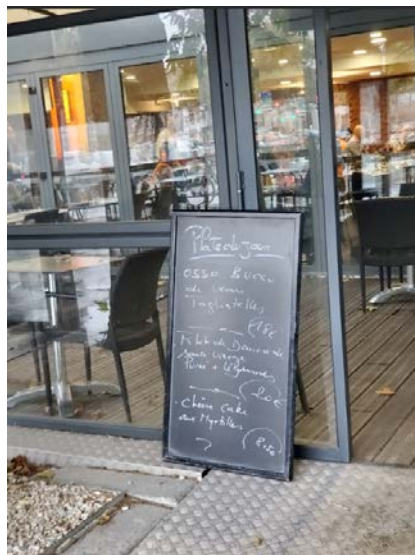 Plats du jour
osso Bucco
de veau
Tagliatelles
18€
Filet de Daurade
Sauce vierge
Purée + légumes
20€
Cheese Cake
aux Myrtilles
8,50